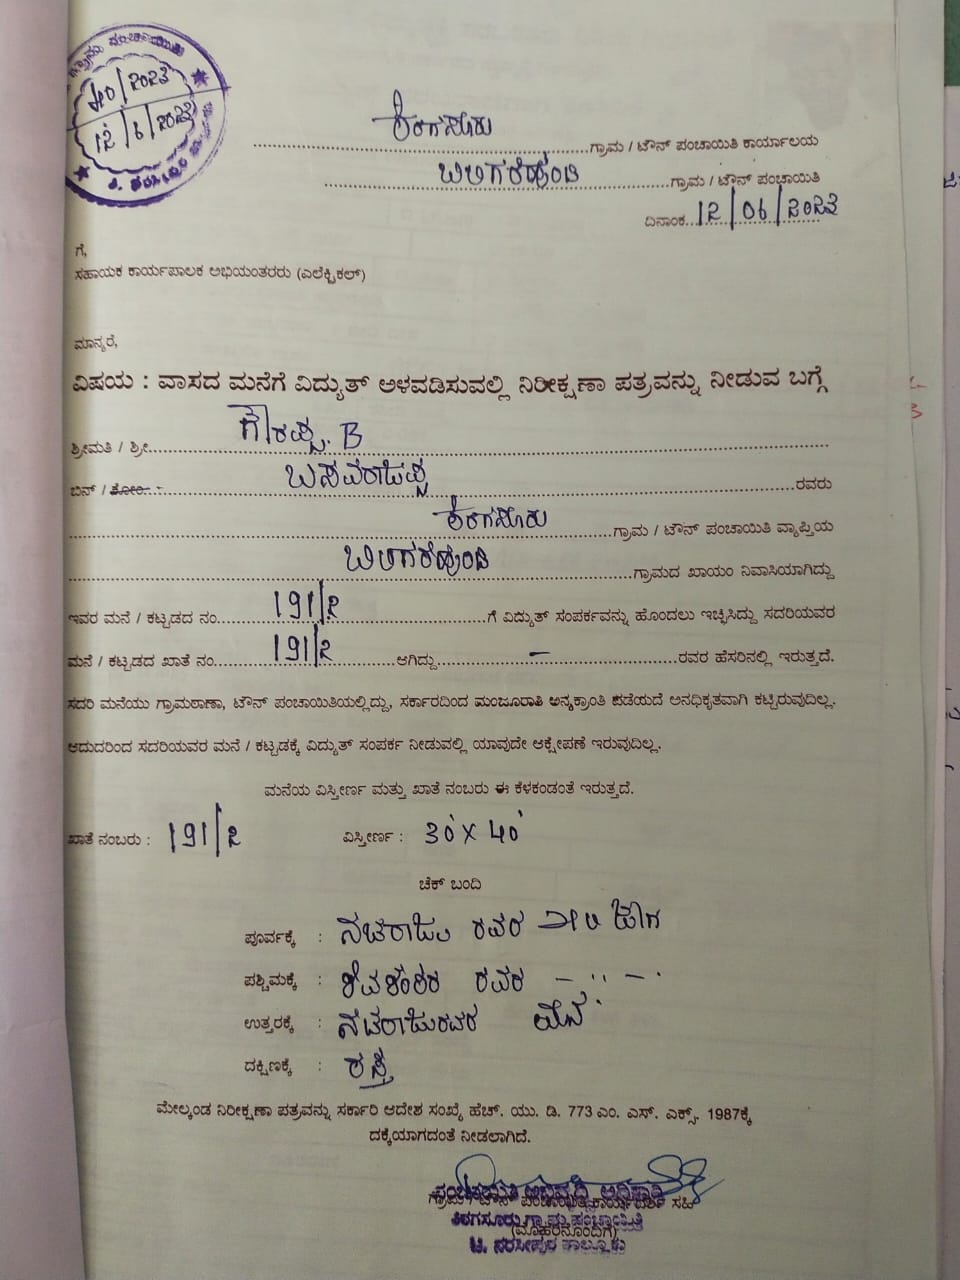 40/2023
12/6/2023
ಕಿರಗಸೂರು ಗ್ರಾಮ / ಟೌನ್ ಪಂಚಾಯಿತಿ ಕಾರ್ಯಾಲಯ
ಬಿಲಿಗೆರೆಹುಂಡಿ ಗ್ರಾಮ / ಟೌನ್ ಪಂಚಾಯಿತಿ
ದಿನಾಂಕ 12/06/2023
ಗೆ,
ಸಹಾಯಕ ಕಾರ್ಯಪಾಲಕ ಅಭಿಯಂತರರು (ಎಲೆಕ್ಟ್ರಿಕಲ್)
ಮಾನ್ಯರೆ,
ವಿಷಯ : ವಾಸದ ಮನೆಗೆ ವಿದ್ಯುತ್ ಅಳವಡಿಸುವಲ್ಲಿ ನಿರೀಕ್ಷಣಾ ಪತ್ರವನ್ನು ನೀಡುವ ಬಗ್ಗೆ
ಶ್ರೀಮತಿ / ಶ್ರೀ. ಗೌರಪ್ಪ. B
ಬಿನ್ / ಕೋಂ ಬಸವರಾಜಪ್ಪ ರವರು
ಕಿರಗಸೂರು ಗ್ರಾಮ / ಟೌನ್ ಪಂಚಾಯಿತಿ ವ್ಯಾಪ್ತಿಯ
ಬಿಲಿಗೆರೆಹುಂಡಿ ಗ್ರಾಮದ ಖಾಯಂ ನಿವಾಸಿಯಾಗಿದ್ದು
ಇವರ ಮನೆ / ಕಟ್ಟಡದ ನಂ. 191/2 ಗೆ ವಿದ್ಯುತ್ ಸಂಪರ್ಕವನ್ನು ಹೊಂದಲು ಇಚ್ಛಿಸಿದ್ದು ಸದರಿಯವರ
ಮನೆ / ಕಟ್ಟಡದ ಖಾತೆ ನಂ. 191/2 ಆಗಿದ್ದು - ರವರ ಹೆಸರಿನಲ್ಲಿ ಇರುತ್ತದೆ.
ಸದರಿ ಮನೆಯು ಗ್ರಾಮಠಾಣಾ, ಟೌನ್ ಪಂಚಾಯಿತಿಯಲ್ಲಿದ್ದು, ಸರ್ಕಾರದಿಂದ ಮಂಜೂರಾತಿ ಅನ್ಯಕ್ರಾಂತಿ ಪಡೆಯದೆ ಅನಧಿಕೃತವಾಗಿ ಕಟ್ಟಿರುವುದಿಲ್ಲ.
ಆದುದರಿಂದ ಸದರಿಯವರ ಮನೆ / ಕಟ್ಟಡಕ್ಕೆ ವಿದ್ಯುತ್ ಸಂಪರ್ಕ ನೀಡುವಲ್ಲಿ ಯಾವುದೇ ಆಕ್ಷೇಪಣೆ ಇರುವುದಿಲ್ಲ.
ಮನೆಯ ವಿಸ್ತೀರ್ಣ ಮತ್ತು ಖಾತೆ ನಂಬರು ಈ ಕೆಳಕಂಡಂತೆ ಇರುತ್ತದೆ.
ಖಾತೆ ನಂಬರು : 191/2 ವಿಸ್ತೀರ್ಣ : 30' x 40'
ಚೆಕ್ ಬಂದಿ
ಪೂರ್ವಕ್ಕೆ : ನಟರಾಜು ರವರ ಖಾಲಿ ಜಾಗ
ಪಶ್ಚಿಮಕ್ಕೆ : ಶಿವಶಂಕರ ರವರ - ,, -
ಉತ್ತರಕ್ಕೆ : ನಟರಾಜುರವರ ಮನೆ
ದಕ್ಷಿಣಕ್ಕೆ : ರಸ್ತೆ
ಮೇಲ್ಕಂಡ ನಿರೀಕ್ಷಣಾ ಪತ್ರವನ್ನು ಸರ್ಕಾರಿ ಆದೇಶ ಸಂಖ್ಯೆ ಹೆಚ್. ಯು. ಡಿ. 773 ಎಂ. ಎಸ್. ಎಕ್ಸ್. 1987ಕ್ಕೆ
ದಕ್ಕೆಯಾಗದಂತೆ ನೀಡಲಾಗಿದೆ.
ಪಂಚಾಯಿತಿ ಅಭಿವೃದ್ಧಿ ಅಧಿಕಾರಿ
ಗ್ರಾಮ / ಟೌನ್ ಪಂಚಾಯಿತಿ ಕಾರ್ಯದರ್ಶಿ ಸಹಿ
ಕಿರಗಸೂರು ಗ್ರಾಮ ಪಂಚಾಯಿತಿ
(ಮೊಹರಿನೊಂದಿಗೆ)
ಟಿ. ನರಸೀಪುರ ತಾಲ್ಲೂಕು